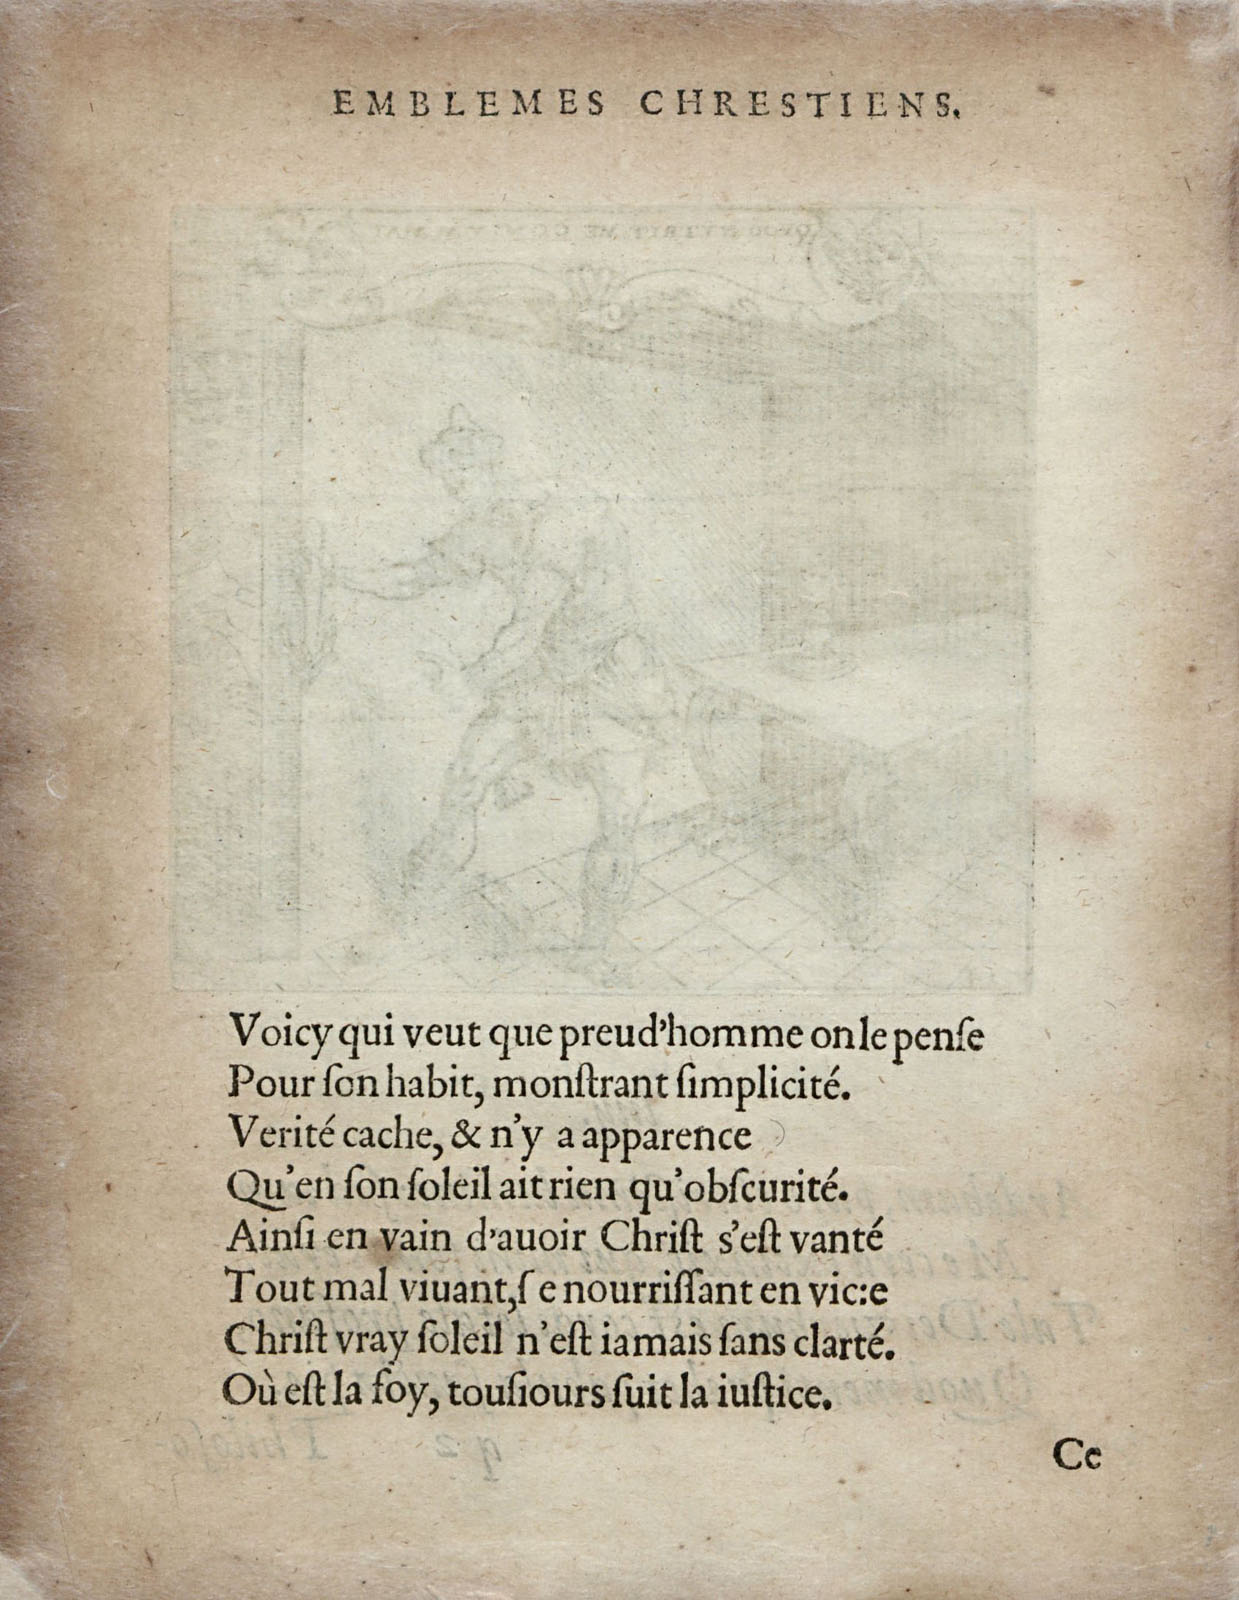 EMBLEMES CHRESTIENS.
Voicy qui veut que preud'homme on le penſe
Pour ſon habit, monſtrant ſimplicité.
Verité cache, & n'y a apparence
Qu'en ſon ſoleil ait rien qu'obſcurité.
Ainſi en vain d'auoir Chriſt s'eſt vanté
Tout mal viuant,ſ e nourriſſant en vic:e
Chriſt vray ſoleil n'eſt iamais ſans clarté.
Où eſt la foy, touſiours ſuit la iuſtice.
Ce